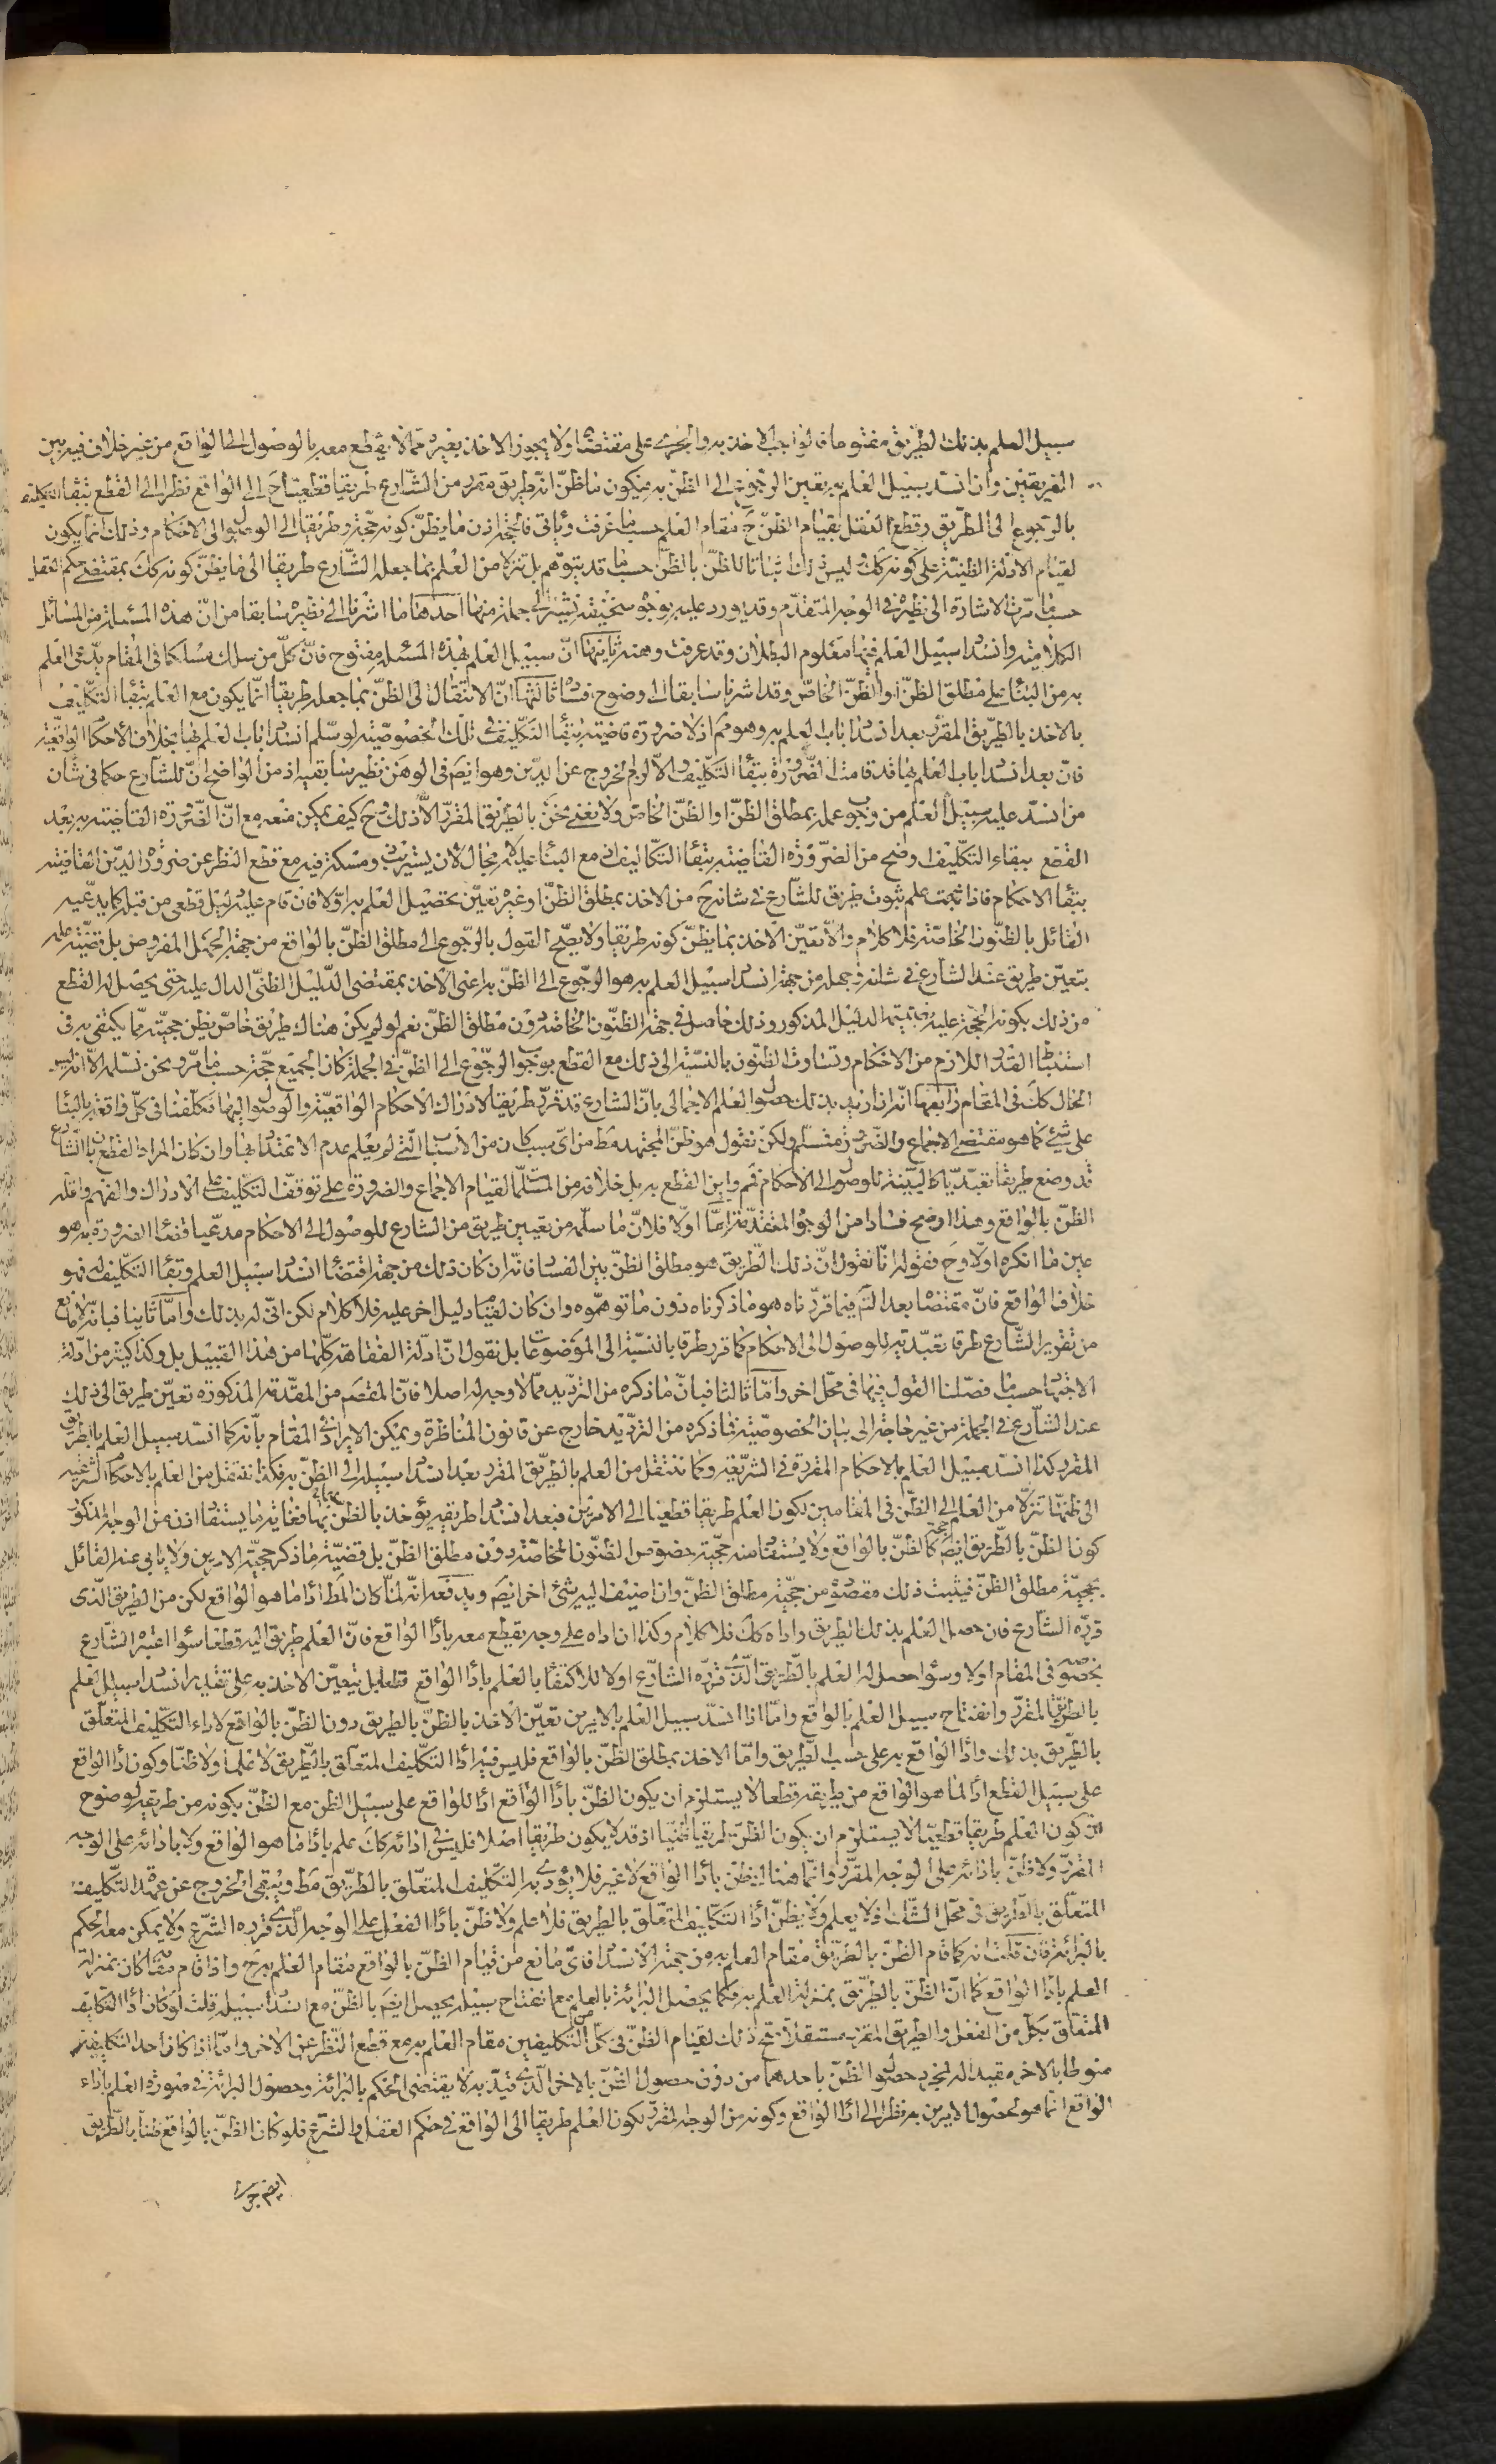 سبيل العلم بذلك الطريق مفتوحا فالواجب الاخذ به والجرى على مقتضاه ولا يجوز الاخذ بغيره مما لا يقطع معه بالوصول الى الواقع من غير خلاف فيه بين
الفريقين وان انسد سبيل العلم به تعين الرجوع الى الظن به فيكون ما ظن انه طريق مقرر من الشارع طريقا قطعيا ح الى الواقع نظرا الى القطع ببقاء التكليف
بالرجوع الى الطريق وقطع العقل بقيام الظن ح مقام العلم حسبما عرفت وياتى فالحجة اذن ما يظن كونه حجة وطريقا الى الوصول الى الاحكام وذلك انما يكون
لقيام الادلة الظنية على كونه كك وليس ذلك اثباتا للظن بالظن حسبما قد يتوهم بل تنزلا من العلم بما جعله الشارع طريقا الى ما يظن كونه كك بمقتضى حكم العقل
حسبما مرت الاشارة الى نظيره فى الوجه المتقدم وقد يورد عليه بوجوه سخيفة نشير الى جملة منها احدها ما اشرنا الى نظيره سابقا من ان هذه المسئلة من المسائل
الكلامية وانسداد سبيل العلم فيها معلوم البطلان وقد عرفت وهنه ثانيها ان سبيل العلم بهذه المسئلة مفتوح فان كل من سلك مسلكا فى المقام يدعى العلم
به من البناء على مطلق الظن او الظن الخاص وقد اشرنا سابقا الى وضوح فساده ثالثها ان الانتقال الى الظن بما جعله طريقا انما يكون مع العلم ببقاء التكليف
بالاخذ بالطريق المقرر بعد انسداد باب العلم به وهو مم اذ لا ضرورة قاضية ببقاء التكليف فى تلك الخصوصية لو سلم انسداد باب العلم بها بخلاف الاحكام الواقعية
فان بعد انسداد باب العلم بها قد قامت الضرورة ببقاء التكليف والا لزم الخروج عن الدين وهو ايضم فى الوهن نظير سابقيه اذ من الواضح ان للشارع حكما فى شان
من انسد عليه سبيل العلم من وجوب عمله بمطلق الظن او الظن الخاص ولا نعنى نحن بالطريق المقرر الا ذلك وح كيف يمكن منعه مع ان الضرورة القاضية به بعد
القطع ببقاء التكليف اوضح من الضرورة القاضية ببقاء التكاليف اذ مع البناء عليه لا مجال لان يستريب ذو مسكة فيه مع قطع النظر عن ضرورة الدين القاضية
ببقاء الاحكام فاذا ثبت علم ثبوت طريق للشارع فى شانه ح من الاخذ بمطلق الظن او غيره تعين تحصيل العلم به اولا فان قام عليه دليل قطعى من قبله كما يدعيه
القائل بالظنون الخاصة فلا كلام والا تعين الاخذ بما يظن كونه طريقا ولا يصح القول بالرجوع الى مطلق الظن بالواقع من جهة الجهل المفروض بل قضية علمه
بتعين طريق عند الشارع فى شانه وجهله من جهة انسداد سبيل العلم به هو الرجوع الى الظن به اعنى الاخذ بمقتضى الدليل الظنى الدال عليه حتى يحصل له القطع
من ذلك بكونه الحجة عليه بضميمة الدليل المذكور وذلك حاصل فى جهة الظنون الخاصة دون مطلق الظن نعم لو لم يكن هناك طريق خاص يظن حجيته مما يكتفى به فى
استنباط القدر اللازم من الاحكام وتساوت الظنون بالنسبة الى ذلك مع القطع بوجوب الرجوع الى الظن فى الجملة كان الجميع حجة حسبما مر ونحن نسلمه الا انه ليس
الحال كك فى المقام رابعها انه ان اريد بذلك حصول العلم الاجمالى بان الشارع قد قرر طريقا لادراك الاحكام الواقعية والوصول اليها فكلفنا فى كل واقعة بالبناء
على شئ كما هو مقتضى الاجماع والضرورة فمسلم ولكن نقول هو ظن المجتهد مط من اى سبب كان من الاسباب التى لم يعلم عدم الاعتداد بها وان كان المراد القطع بان الشارع
قد وضع طريقا تعبديا كالبينة للوصول الى الاحكام فمم واين القطع به بل خلافه من المسلمات لقيام الاجماع والضرورة على توقف التكليف على الادراك والفهم واقله
الظن بالواقع وهذا اوضح فسادا من الوجوه المتقدمة اما اولا فلان ما سلمه من تعيين طريق من الشارع للوصول الى الاحكام مدعيا قضاء الضرورة به هو
عين ما انكره اولا وح فقوله انا نقول ان ذلك الطريق هو مطلق الظن بين الفساد فانه ان كان ذلك من جهة اقتضاء انسداد سبيل العلم وبقاء التكليف له فهو
خلاف الواقع فان مقتضاه بعد التم فيما قررناه هو ما ذكرناه دون ما توهموه وان كان لقيام دليل اخر عليه فلا كلام لكن انى له بذلك واما ثانيا فبانه لا مانع
من تقرير الشارع طرقا تعبدية للوصول الى الاحكام كما قرر طرقا بالنسبة الى الموضوعات بل نقول ان ادلة الفقاهة كلها من هذا القبيل بل وكذا كثير من ادلة
الاجتهاد حسبما فصلنا القول فيها فى محل اخر واما ثالثا فبان ما ذكره من الترديد مما لا وجه له اصلا فان المقصم من المقدمة المذكورة تعين طريق الى ذلك
عند الشارع فى الجملة من غير حاجة الى بيان الخصوصية فما ذكره من الترديد خارج عن قانون المناظرة ويمكن الايراد فى المقام بانه كما انسد سبيل العلم بالطريق
المقرر كذا انسد سبيل العلم بالاحكام المقررة فى الشريعة وكما ننتقل من العلم بالطريق المقرر بعد انسداد سبيله الى الظن به فكذا ننتقل من العلم بالاحكام الشرعية
الى ظنها تنزلا من العلم الى الظن فى المقامين لكون العلم طريقا قطعيا الى الامرين فبعد انسداد طريقه يؤخذ بالظن بهما فغاية ما يستفاد اذن من الوجه المذكور
كون الظن بالطريق ايضم حجة كالظن بالواقع ولا يستفاد منه حجية خصوص الظنون الخاصة دون مطلق الظن بل قضية ما ذكر حجية الامرين ولا يابى عنه القائل
بحجية مطلق الظن فيثبت ذلك مقصوده من حجية مطلق الظن وان اضيف اليه شئ اخر ايضم ويدفعه انه لما كان المط اداء ما هو الواقع لكن من الطريق الذى
قرره الشارع فان حصل العلم بذلك الطريق واداه كك فلا كلام وكذا ان اداه على وجه يقطع معه باداء الواقع فان العلم طريق اليه قطعا سواء اعتبره الشارع
بخصوصه فى المقام اولا وسواء حصل له العلم بالطريق الذى قرره الشارع اولا للاكتفاء بالعلم باداء الواقع قطعا بل يتعين الاخذ به على تقدير انسداد سبيل العلم
بالطريق المقرر وانفتاح سبيل العلم بالواقع واما اذا انسد سبيل العلم بالامرين تعين الاخذ بالظن بالطريق دون الظن بالواقع لاداء التكليف المتعلق
بالطريق بذلك واداء الواقع به على حسب الطريق واما الاخذ بمطلق الظن بالواقع فليس فيه اداء التكليف المتعلق بالطريق لا علما ولا ظنا وكون اداء الواقع
على سبيل القطع اداء لما هو الواقع من طريقه قطعا لا يستلزم ان يكون الظن باداء الواقع اداء للواقع على سبيل الظن مع الظن بكونه من طريقه لوضوح
ان كون العلم طريقا قطعيا لا يستلزم ان يكون الظن طريقا ظنيا اذ قد لا يكون طريقا اصلا فليس فى ادائه كك علم باداء ما هو الواقع ولا بادائه على الوجه
المقرر ولا ظن بادائه على الوجه المقرر وانما هنا الظن باداء الواقع لا غير فلا يؤدى به التكليف المتعلق بالطريق مط ويبقى الخروج عن عهدة التكليف
المتعلق بالطريق فى محل الشك اذ لا يعلم ولا يظن اداء التكليف المتعلق بالطريق فلا علم ولا ظن باداء الفعل على الوجه الذى قرره الشرع ولا يمكن معه الحكم
بالبرائة فان قلت انه كما قام الظن بالطريق مقام العلم به من جهة الانسداد فاى مانع من قيام الظن بالواقع مقام العلم به ح واذا قام مقامه كان بمنزلة
العلم باداء الواقع كما ان الظن بالطريق بمنزلة العلم به فكما يحصل البرائة بالعلم مع انفتاح سبيله يحصل ايضم بالظن مع انسداد سبيله قلت لو كان اداء التكليف
المتعلق بكل من الفعل والطريق المقرر مستقلا صح ذلك لقيام الظن فى كل من التكليفين مقام العلم به مع قطع النظر عن الاخر واما اذا كان احد التكليفين
منوطا بالاخر مقيدا له فمجرد حصول الظن باحدهما من دون حصول الظن بالاخر الذى قيد به لا يقتضى الحكم بالبرائة وحصول البرائة فى صورة العلم باداء
الواقع انما هو لحصول الامرين به نظرا الى اداء الواقع وكونه من الوجه المقرر لكون العلم طريقا الى الواقع فى حكم العقل والشرع فلو كان الظن بالواقع ظنا بالطريق
ايضم جرى